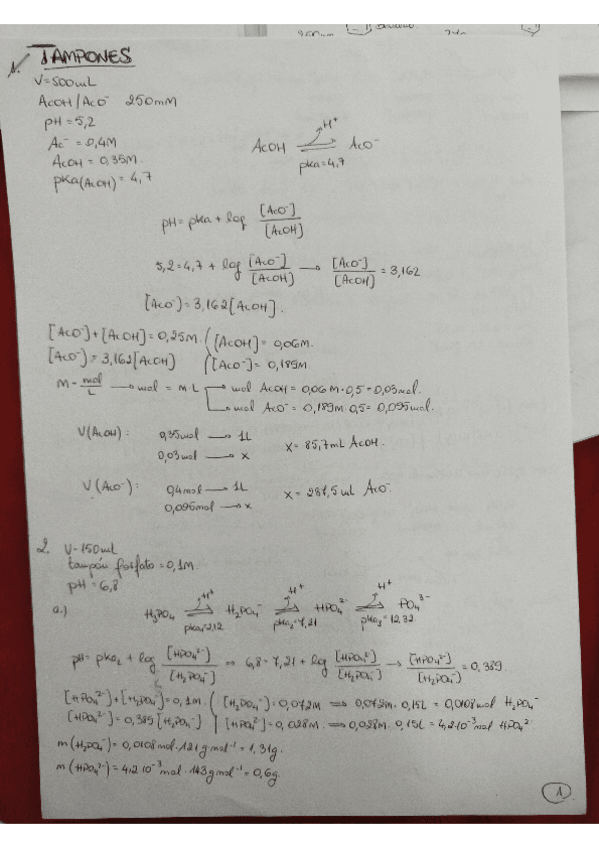 TAMPONES
1. V=500mL
AcOH/AcO⁻ 250mM
pH=5,2
Ac⁻=0,4M
AcOH=0,35M.
pKa(AcOH)=4,7
AcOH ⇌ AcO⁻
H⁺
pKa=4,7
pH=pKa+log [AcO⁻]/[AcOH]
5,2=4,7+log [AcO⁻]/[AcOH] → [AcO⁻]/[AcOH]=3,162
[AcO⁻]=3,162[AcOH].
[AcO⁻]+[AcOH]=0,25M. [AcOH]=0,06M.
[AcO⁻]=3,162[AcOH] [AcO⁻]=0,189M
M=mol/L → mol=M·L → mol AcOH=0,06M·0,5=0,03mol.
→ mol AcO⁻=0,189M·0,5=0,095mol.
V(AcOH): 0,35mol → 1L
0,03mol → x x=85,7mL AcOH.
V(AcO⁻): 0,4mol → 1L
0,095mol → x x=237,5mL AcO⁻.
2. V=150mL
tampón fosfato=0,1M.
pH=6,8
a.) H₃PO₄ ⇌ H₂PO₄⁻ ⇌ HPO₄²⁻ ⇌ PO₄³⁻
H⁺ H⁺ H⁺
pKa₁=2,12 pKa₂=7,21 pKa₃=12,32
pH=pKa₂+log [HPO₄²⁻]/[H₂PO₄⁻] ⇒ 6,8=7,21+log [HPO₄²⁻]/[H₂PO₄⁻] → [HPO₄²⁻]/[H₂PO₄⁻]=0,389.
[HPO₄²⁻]+[H₂PO₄⁻]=0,1M. [H₂PO₄⁻]=0,072M ⇒ 0,072M·0,15L=0,0108mol H₂PO₄⁻
[HPO₄²⁻]=0,389[H₂PO₄⁻] [HPO₄²⁻]=0,028M ⇒ 0,028M·0,15L=4,2·10⁻³mol HPO₄²⁻
m(H₂PO₄⁻)=0,0108mol·121g mol⁻¹=1,31g.
m(HPO₄²⁻)=4,2·10⁻³mol·143g mol⁻¹=0,6g.
1